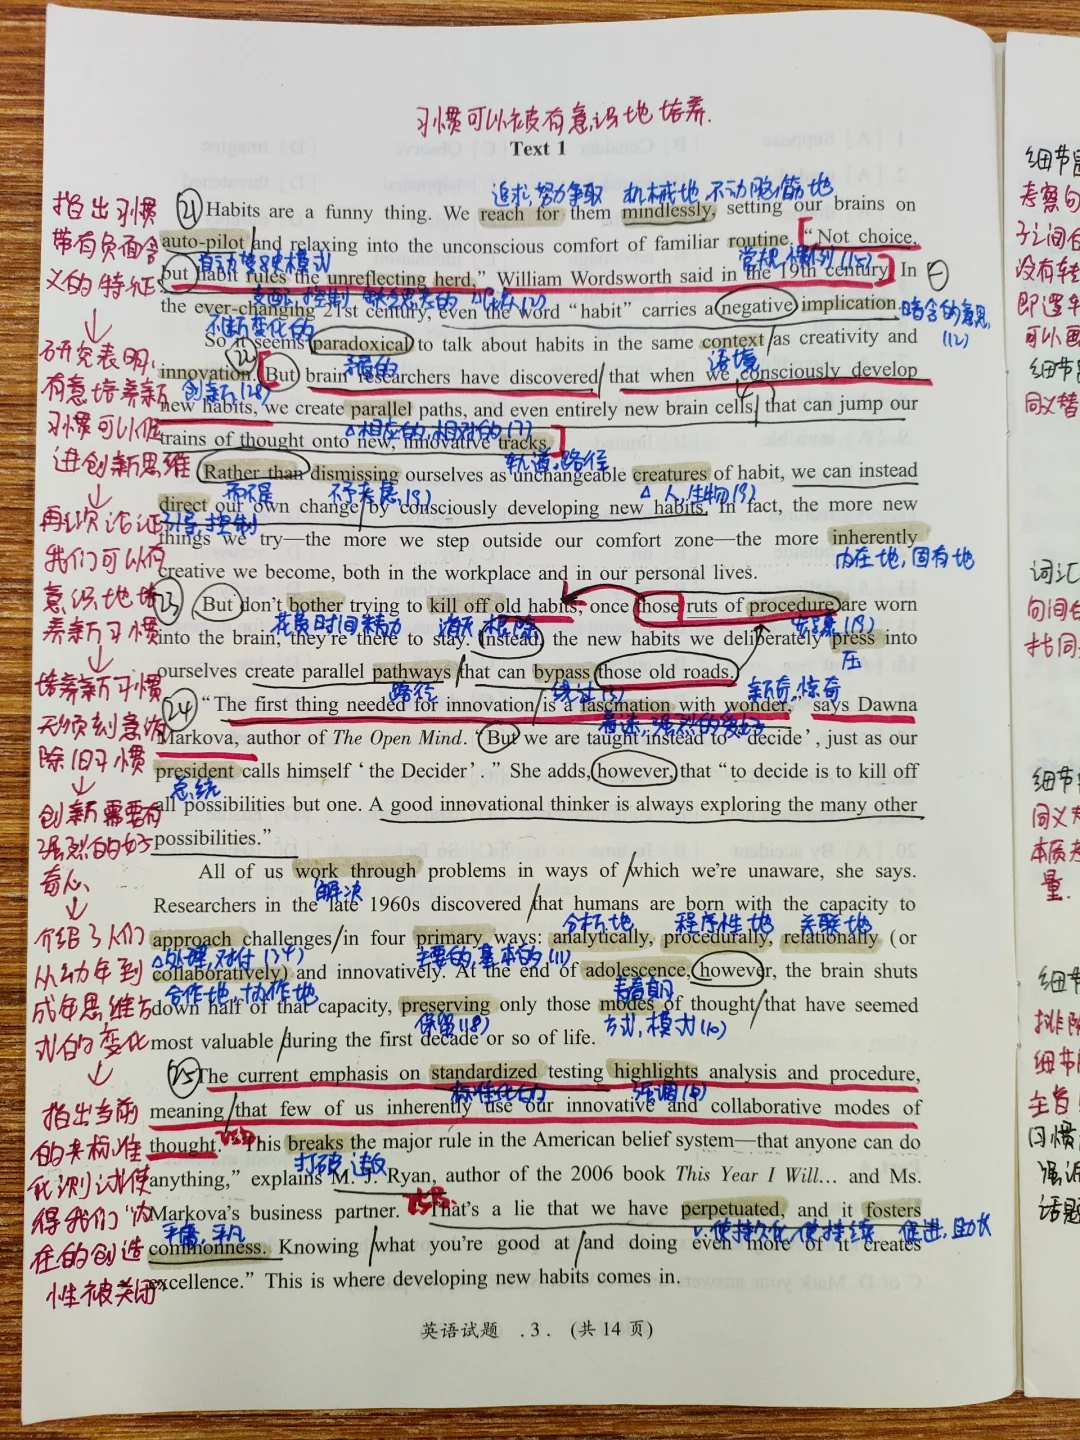 习惯可以被有意识地培养.
Text 1
追求,努力争取 机械地,不动脑筋地
21 Habits are a funny thing. We reach for them mindlessly, setting our brains on
auto-pilot and relaxing into the unconscious comfort of familiar routine. “Not choice,
自动驾驶模式 常规,惯例(15)
but habit rules the unreflecting herd,” William Wordsworth said in the 19th century. In
支配,控制 缺乏思考的
the ever-changing 21st century, even the word “habit” carries a negative implication.
不断变化的 暗含的意思
(12)
So it seems paradoxical to talk about habits in the same context as creativity and
22 矛盾的 语境
innovation. But brain researchers have discovered that when we consciously develop
创新(28)
new habits, we create parallel paths, and even entirely new brain cells, that can jump our
△相应的,相对的(7)
trains of thought onto new, innovative tracks.
轨道,路径
Rather than dismissing ourselves as unchangeable creatures of habit, we can instead
而不是 不予考虑(9) △人,生物(9)
direct our own change by consciously developing new habits. In fact, the more new
引导,控制
things we try—the more we step outside our comfort zone—the more inherently
内在地,固有地
creative we become, both in the workplace and in our personal lives.
23 But don’t bother trying to kill off old habits; once those ruts of procedure are worn
花费时间精力 消灭,根除 步骤(13)
into the brain, they’re there to stay. Instead, the new habits we deliberately press into
压
ourselves create parallel pathways that can bypass those old roads.
路径 绕过(3) 新奇,惊奇
24 “The first thing needed for innovation is a fascination with wonder,” says Dawna
着迷,强烈的爱好
Markova, author of The Open Mind. “But we are taught instead to ‘decide’, just as our
president calls himself ‘the Decider’.” She adds, however, that “to decide is to kill off
总统
all possibilities but one. A good innovational thinker is always exploring the many other
possibilities.”
All of us work through problems in ways of which we’re unaware, she says.
解决
Researchers in the late 1960s discovered that humans are born with the capacity to
分析地 程序性地 关联地
approach challenges in four primary ways: analytically, procedurally, relationally (or
△处理,对付(34) 主要的,基本的(11)
collaboratively) and innovatively. At the end of adolescence, however, the brain shuts
合作地,协作地 青春期
down half of that capacity, preserving only those modes of thought that have seemed
保留(18) 方式,模式(10)
most valuable during the first decade or so of life.
25 The current emphasis on standardized testing highlights analysis and procedure,
标准化的 强调(6)
meaning that few of us inherently use our innovative and collaborative modes of
thought. “This breaks the major rule in the American belief system—that anyone can do
打破,违反
anything,” explains M. J. Ryan, author of the 2006 book This Year I Will... and Ms.
Markova’s business partner. “That’s a lie that we have perpetuated, and it fosters
平庸,平凡 v.使持久化,使持续 促进,助长
commonness. Knowing what you’re good at and doing even more of it creates
excellence.” This is where developing new habits comes in.
英语试题 . 3 . (共 14 页)
指出习惯
带有负面含
义的特征
研究表明:
有意培养新
习惯可以促
进创新思维
再次论证
我们可以有
意识地培
养新习惯
培养新习惯
无须刻意消
除旧习惯
创新需要有
强烈的好
奇心
介绍了人们
从幼年到
成年思维方
式的变化
指出当前
的类标准
化测试使
得我们“内
在的创造
性被关闭”
细节
考察句
子之间
没有转
即逻辑
可以
细节
同义替
词汇
句间
指同
细节
同义
本质
量.
细节
排除
细节
主旨
习惯
强调
话题